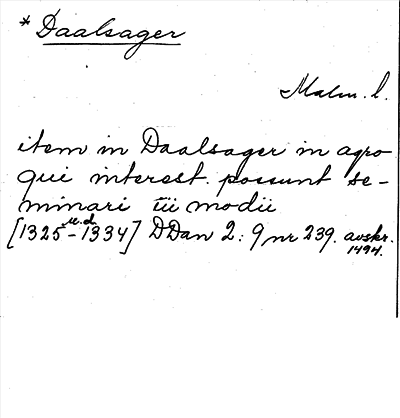 * Daalsager
Malm. l.
item in Daalsager in agro
qui interest. possunt se-
minari iii modii
[1325 u.d. - 1334] DDan 2: 9 nr 239. avskr. 1494.